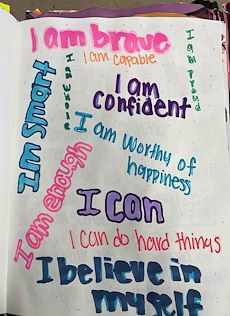 I am brave
I am capable
I am proud
I am confident
I'm smart
I am worthy of
happiness
I am enough
I can
I can do hard things
I believe in
myself